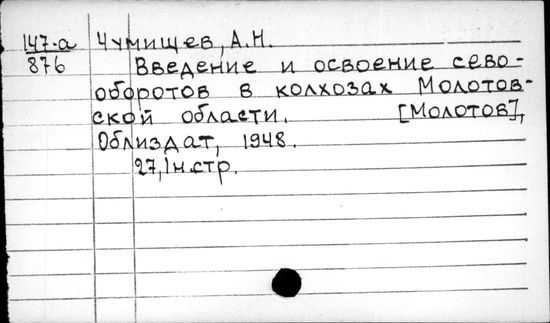 147-а Чумищев, А.Н.
876 Введение и освоение сево-
оборотов в колхозах Молотов-
ской области. [Молотов],
Облиздат, 1948.
27,1н.стр.